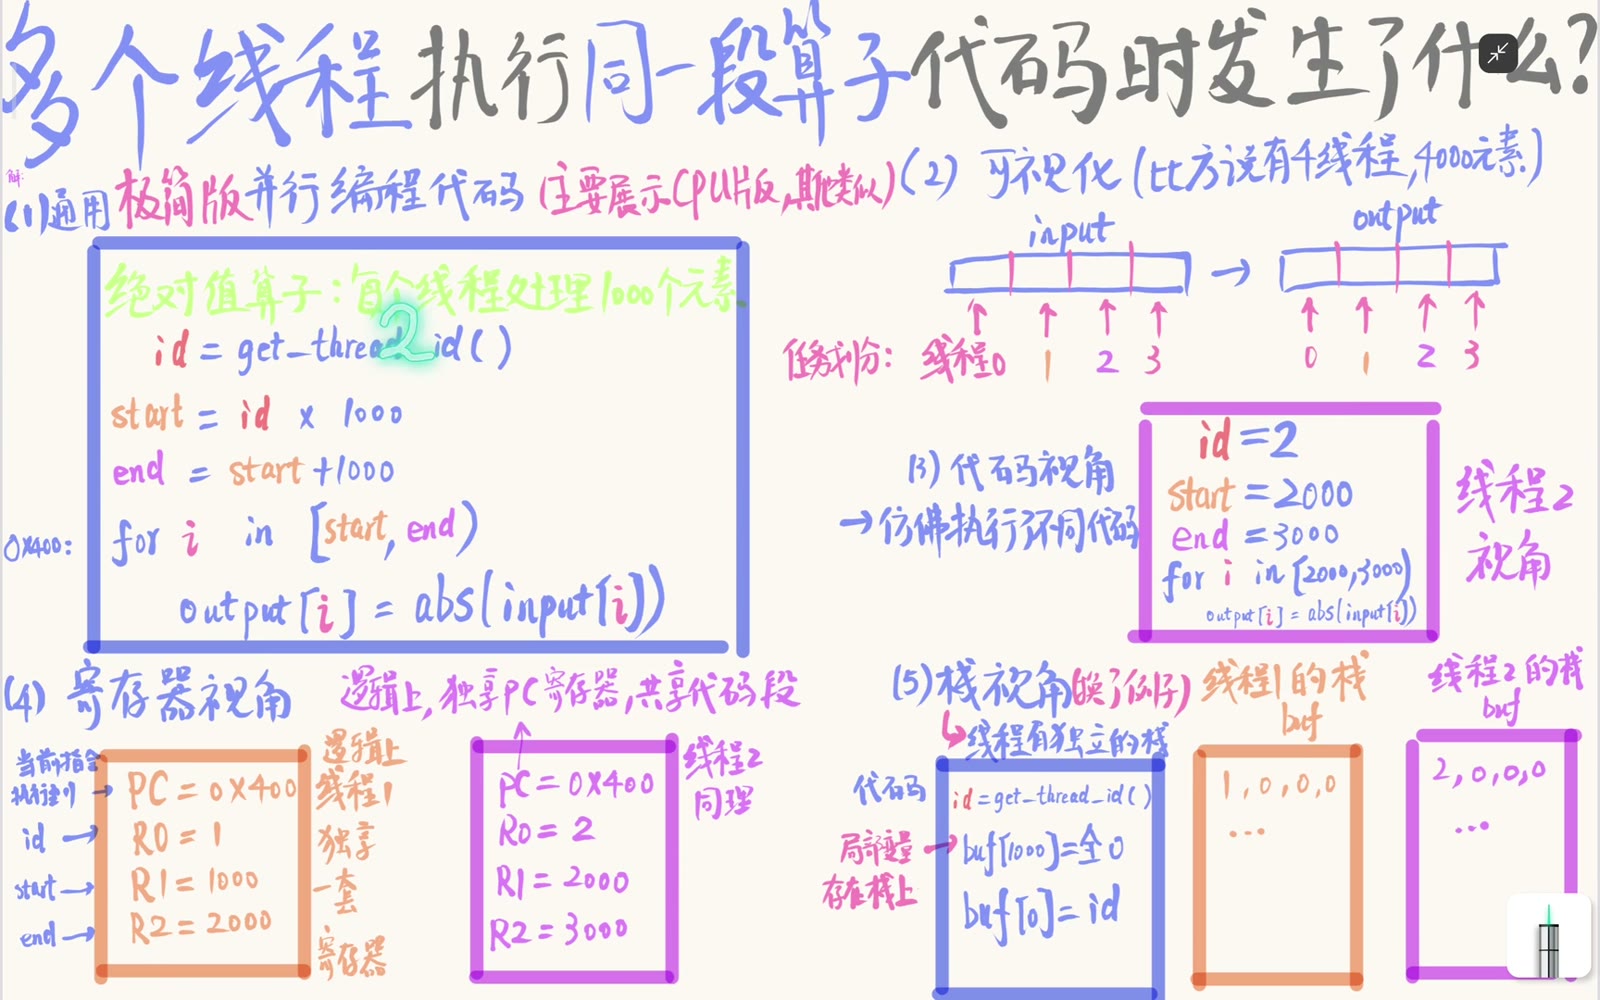 多个线程执行同一段算子代码时发生了什么?
解:
(1)通用极简版并行编程代码(主要展示CPU片反,斯类似)
绝对值算子:每个线程处理1000个元素
id = get_thread_id()
2
start = id x 1000
end = start+1000
0x400:
for i in [start, end)
output[i] = abs(input[i])
(2) 可视化(比方说有4线程,4000元素)
input → output
任务划分: 线程0 1 2 3
0 1 2 3
(3) 代码视角
→仿佛执行了不同代码
id=2
start=2000
end=3000
for i in [2000,3000)
output[i] = abs(input[i])
线程2
视角
(4) 寄存器视角
逻辑上,独享PC寄存器,共享代码段
当前指令
执行到 →
id →
start →
end →
PC=0x400
R0=1
R1=1000
R2=2000
逻辑上
线程1
独享
一套
寄存器
PC=0x400
R0=2
R1=2000
R2=3000
线程2
同理
(5)栈视角(换了例子)
线程有独立的栈
代码
id=get_thread_id()
局部变量
存在栈上
buf[1000]=全0
buf[0]=id
线程1的栈
buf
1,0,0,0
...
线程2的栈
buf
2,0,0,0
...